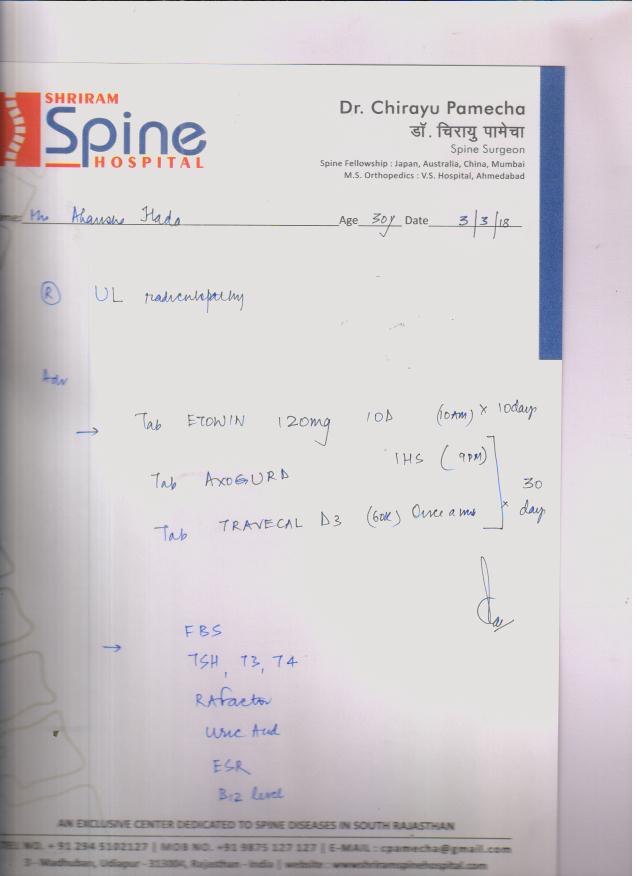 SHRIRAM
Spine
HOSPITAL
Dr. Chirayu Pamecha
डॉ. चिरायु पामेचा
Spine Surgeon
Spine Fellowship : Japan, Australia, China, Mumbai
M.S. Orthopedics : V.S. Hospital, Ahmedabad
Age 30y Date 3/3/18
R UL radiculopathy
Adv
→ Tab ETOWIN 120mg 1OD (10AM) × 10day
Tab AXOGURD 1HS (9PM)
Tab TRAVECAL D3 (60K) Once a
× 30 day
→ FBS
TSH, T3, T4
RA factor
Uric Acid
ESR
B12 level
AN EXCLUSIVE CENTER DEDICATED TO SPINE DISEASES IN SOUTH RAJASTHAN
TEL NO. + 91 294 5102127 | MOB NO. +91 9875 127 127 | E-MAIL : cpamecha@gmail.com
3 - Madhuban, Udaipur - 313004, Rajasthan - India | website : www.shriramspinehospital.com